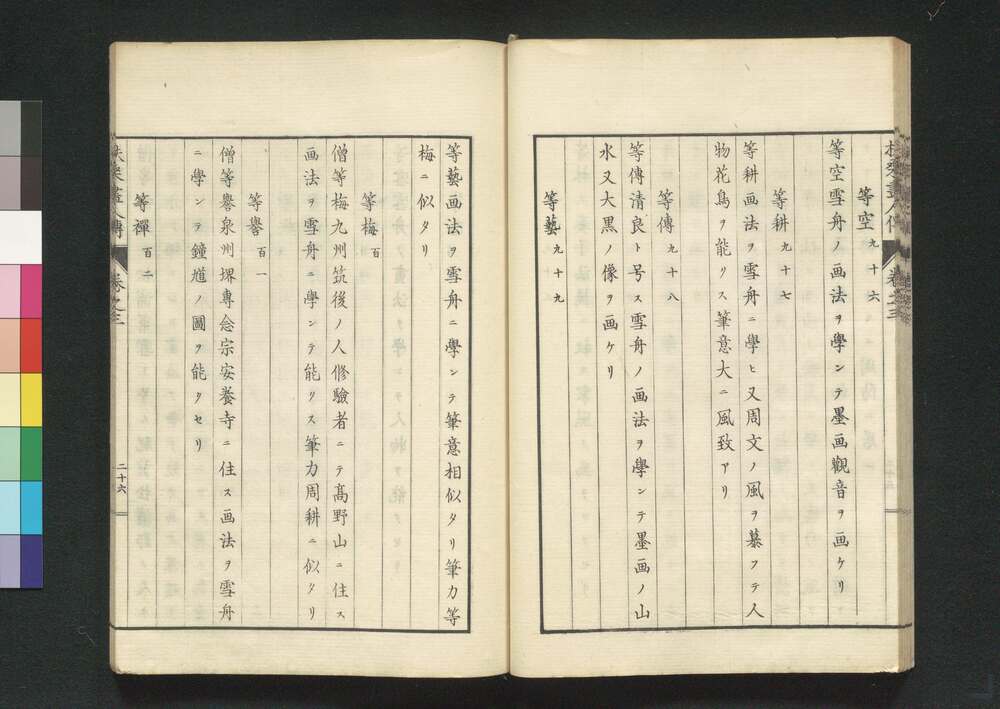 等空 九十六
等空雪舟ノ画法ヲ學ンテ墨画觀音ヲ画ケリ
等耕 九十七
等耕画法ヲ雪舟ニ學ヒ又周文ノ風ヲ慕フテ人
物花鳥ヲ能リス筆意大ニ風致アリ
等傳 九十八
等傳清良ト号ス雪舟ノ画法ヲ學ンテ墨画ノ山
水又大黒ノ像ヲ画ケリ
等藝 九十九
等藝画法ヲ雪舟ニ學ンテ筆意相似タリ筆力等
梅ニ似タリ
等梅 百
僧等梅九州筑後ノ人修驗者ニテ髙野山ニ住ス
画法ヲ雪舟ニ學ンテ能リス筆力周耕ニ似タリ
等譽 百一
僧等譽泉州堺專念宗安養寺ニ住ス画法ヲ雪舟
ニ學ンテ鐘馗ノ圖ヲ能クセリ
等禪 百二
扶桑畫人傳 卷之三 二十六